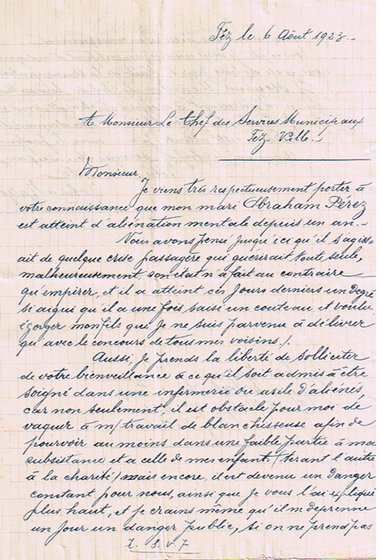 Fèz le 6 Août 1923.
A Monsieur Le Chef des Services Municipaux
Fèz Ville.
Monsieur,
Je viens très respectueusement porter à
votre connaissance que mon mari Abraham Pérez
est atteint d'aliénation mentale depuis un an.
Nous avons pensé jusqu'ici qu'il s'agiss
ait de quelque crise passagère qui guérirait toute seule,
malheureusement son état n'a fait au contraire
qu'empirer, et il a atteint ces jours derniers un degré
si aigu qu'il a une fois saisi un couteau et voulu
égorger mon fils que je ne suis parvenu à délivrer
qu'avec le concours de tous mes voisins.
Aussi, je prends la liberté de solliciter
de votre bienveillance à ce qu'il soit admis à être
soigné dans une infirmerie ou asile d'aliénés,
car non seulement, il est obstacle pour moi de
vaquer à m/travail de blanchisseuse afin de
pourvoir au moins dans une faible partie à ma
subsistance et a celle de mes enfants (étant l'autre
à la charité) mais encore, il est devenu un danger
constant pour nous, ainsi que je vous l'ai expliqué
plus haut, et je crains même qu'il ne devienne
un jour un danger public, si on ne prend pas